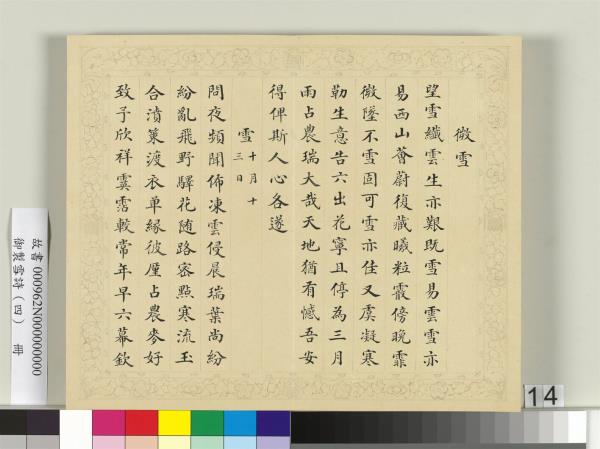 微雪
望雪纖雲生亦艱既雪易雲雪亦
易西山薈蔚復藏曦粒霰傍晚霏
微墜不雪固可雪亦佳又虞凝寒
勒生意告六出花寧且停為三月
雨占農瑞大哉天地猶有憾吾安
得俾斯人心各遂
雪十月十三日
問夜頻聞佈凍雲侵晨瑞葉尚紛
紛亂飛野驛花随路密點寒流玉
合漬策渡衣單緣彼厪占農麥好
致予欣祥霙霑較常年早六幕欽
故書000962N000000000
御製雪詩（四） 冊
14